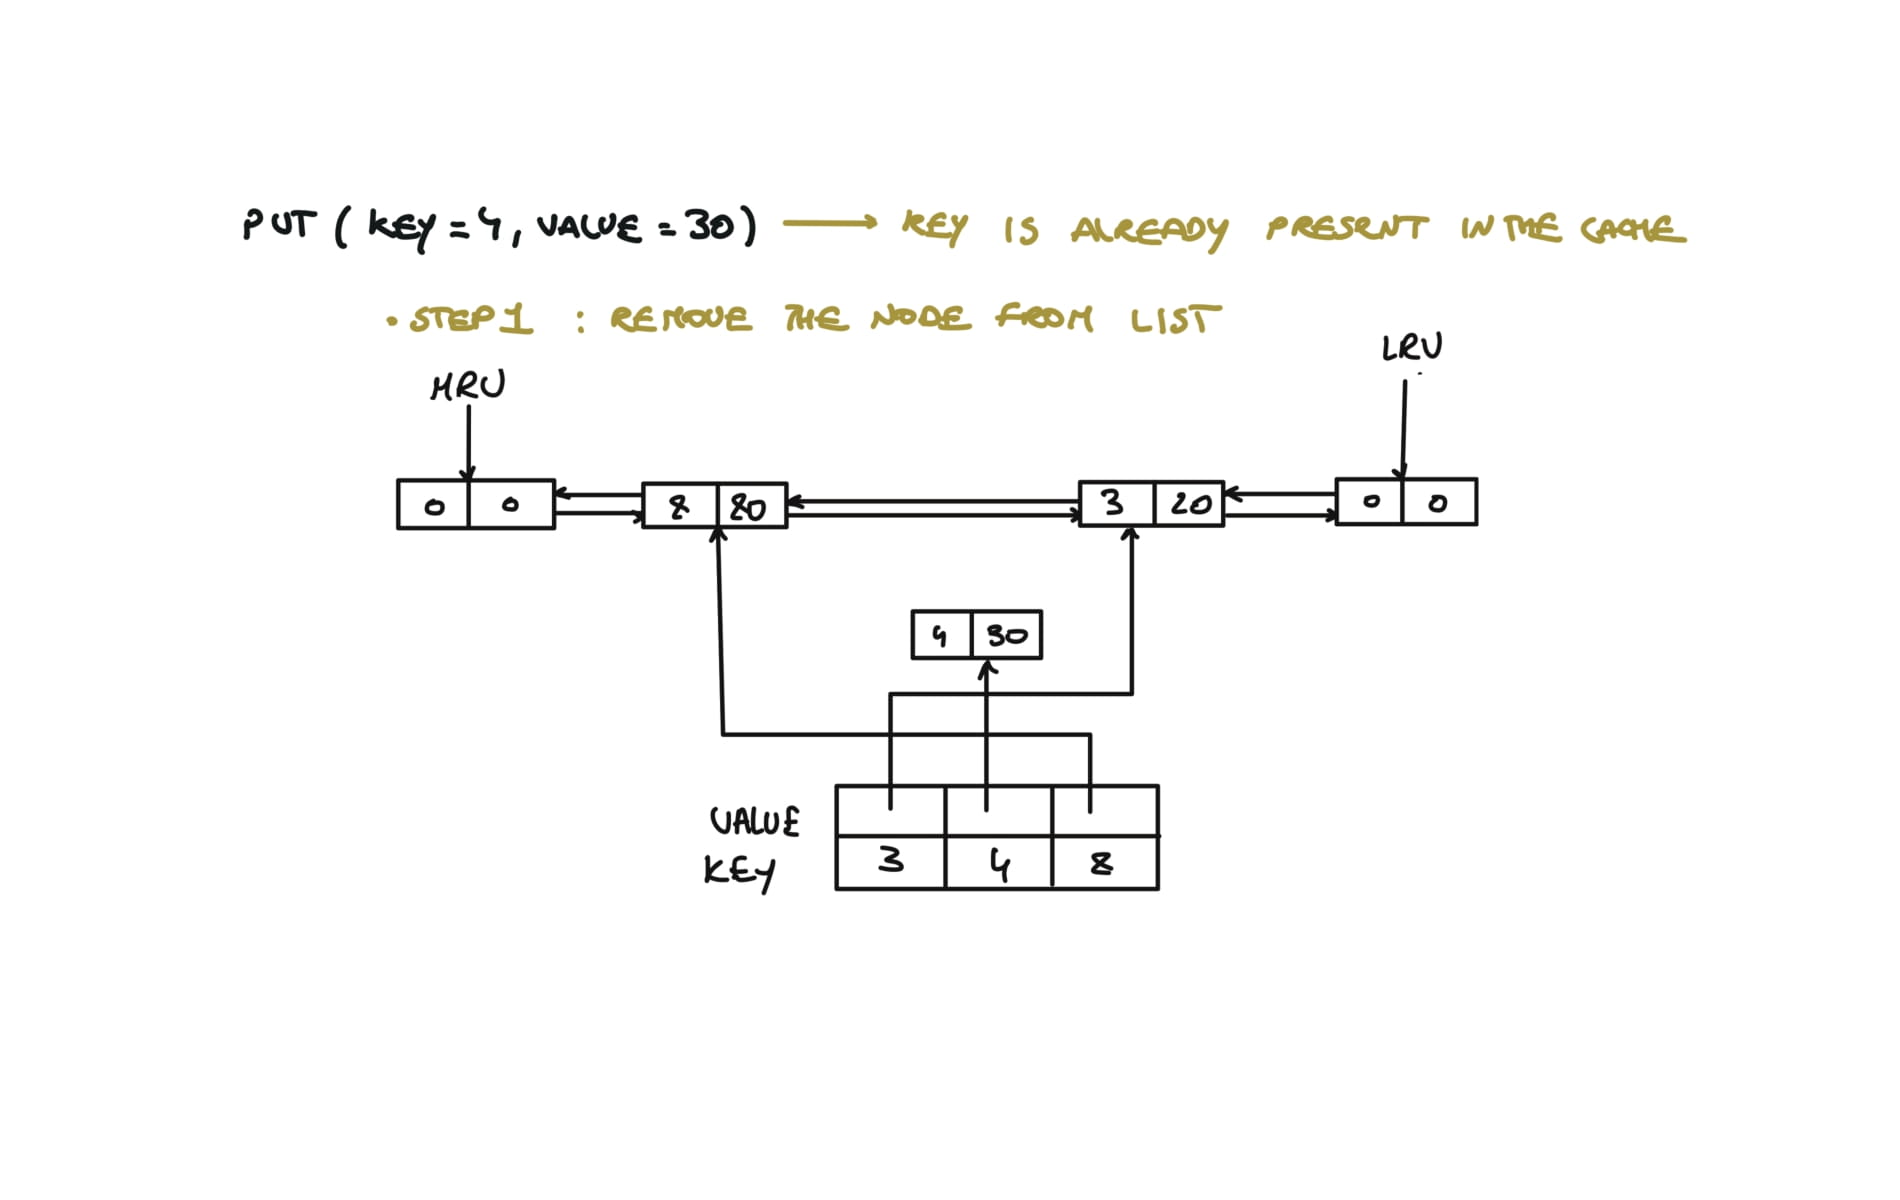 PUT ( KEY = 4, VALUE = 30) → KEY IS ALREADY PRESENT IN THE CACHE
• STEP 1 : REMOVE THE NODE FROM LIST
LRU
MRU
0 0 8 80 3 20 0 0
4 30
VALUE
KEY 3 4 8